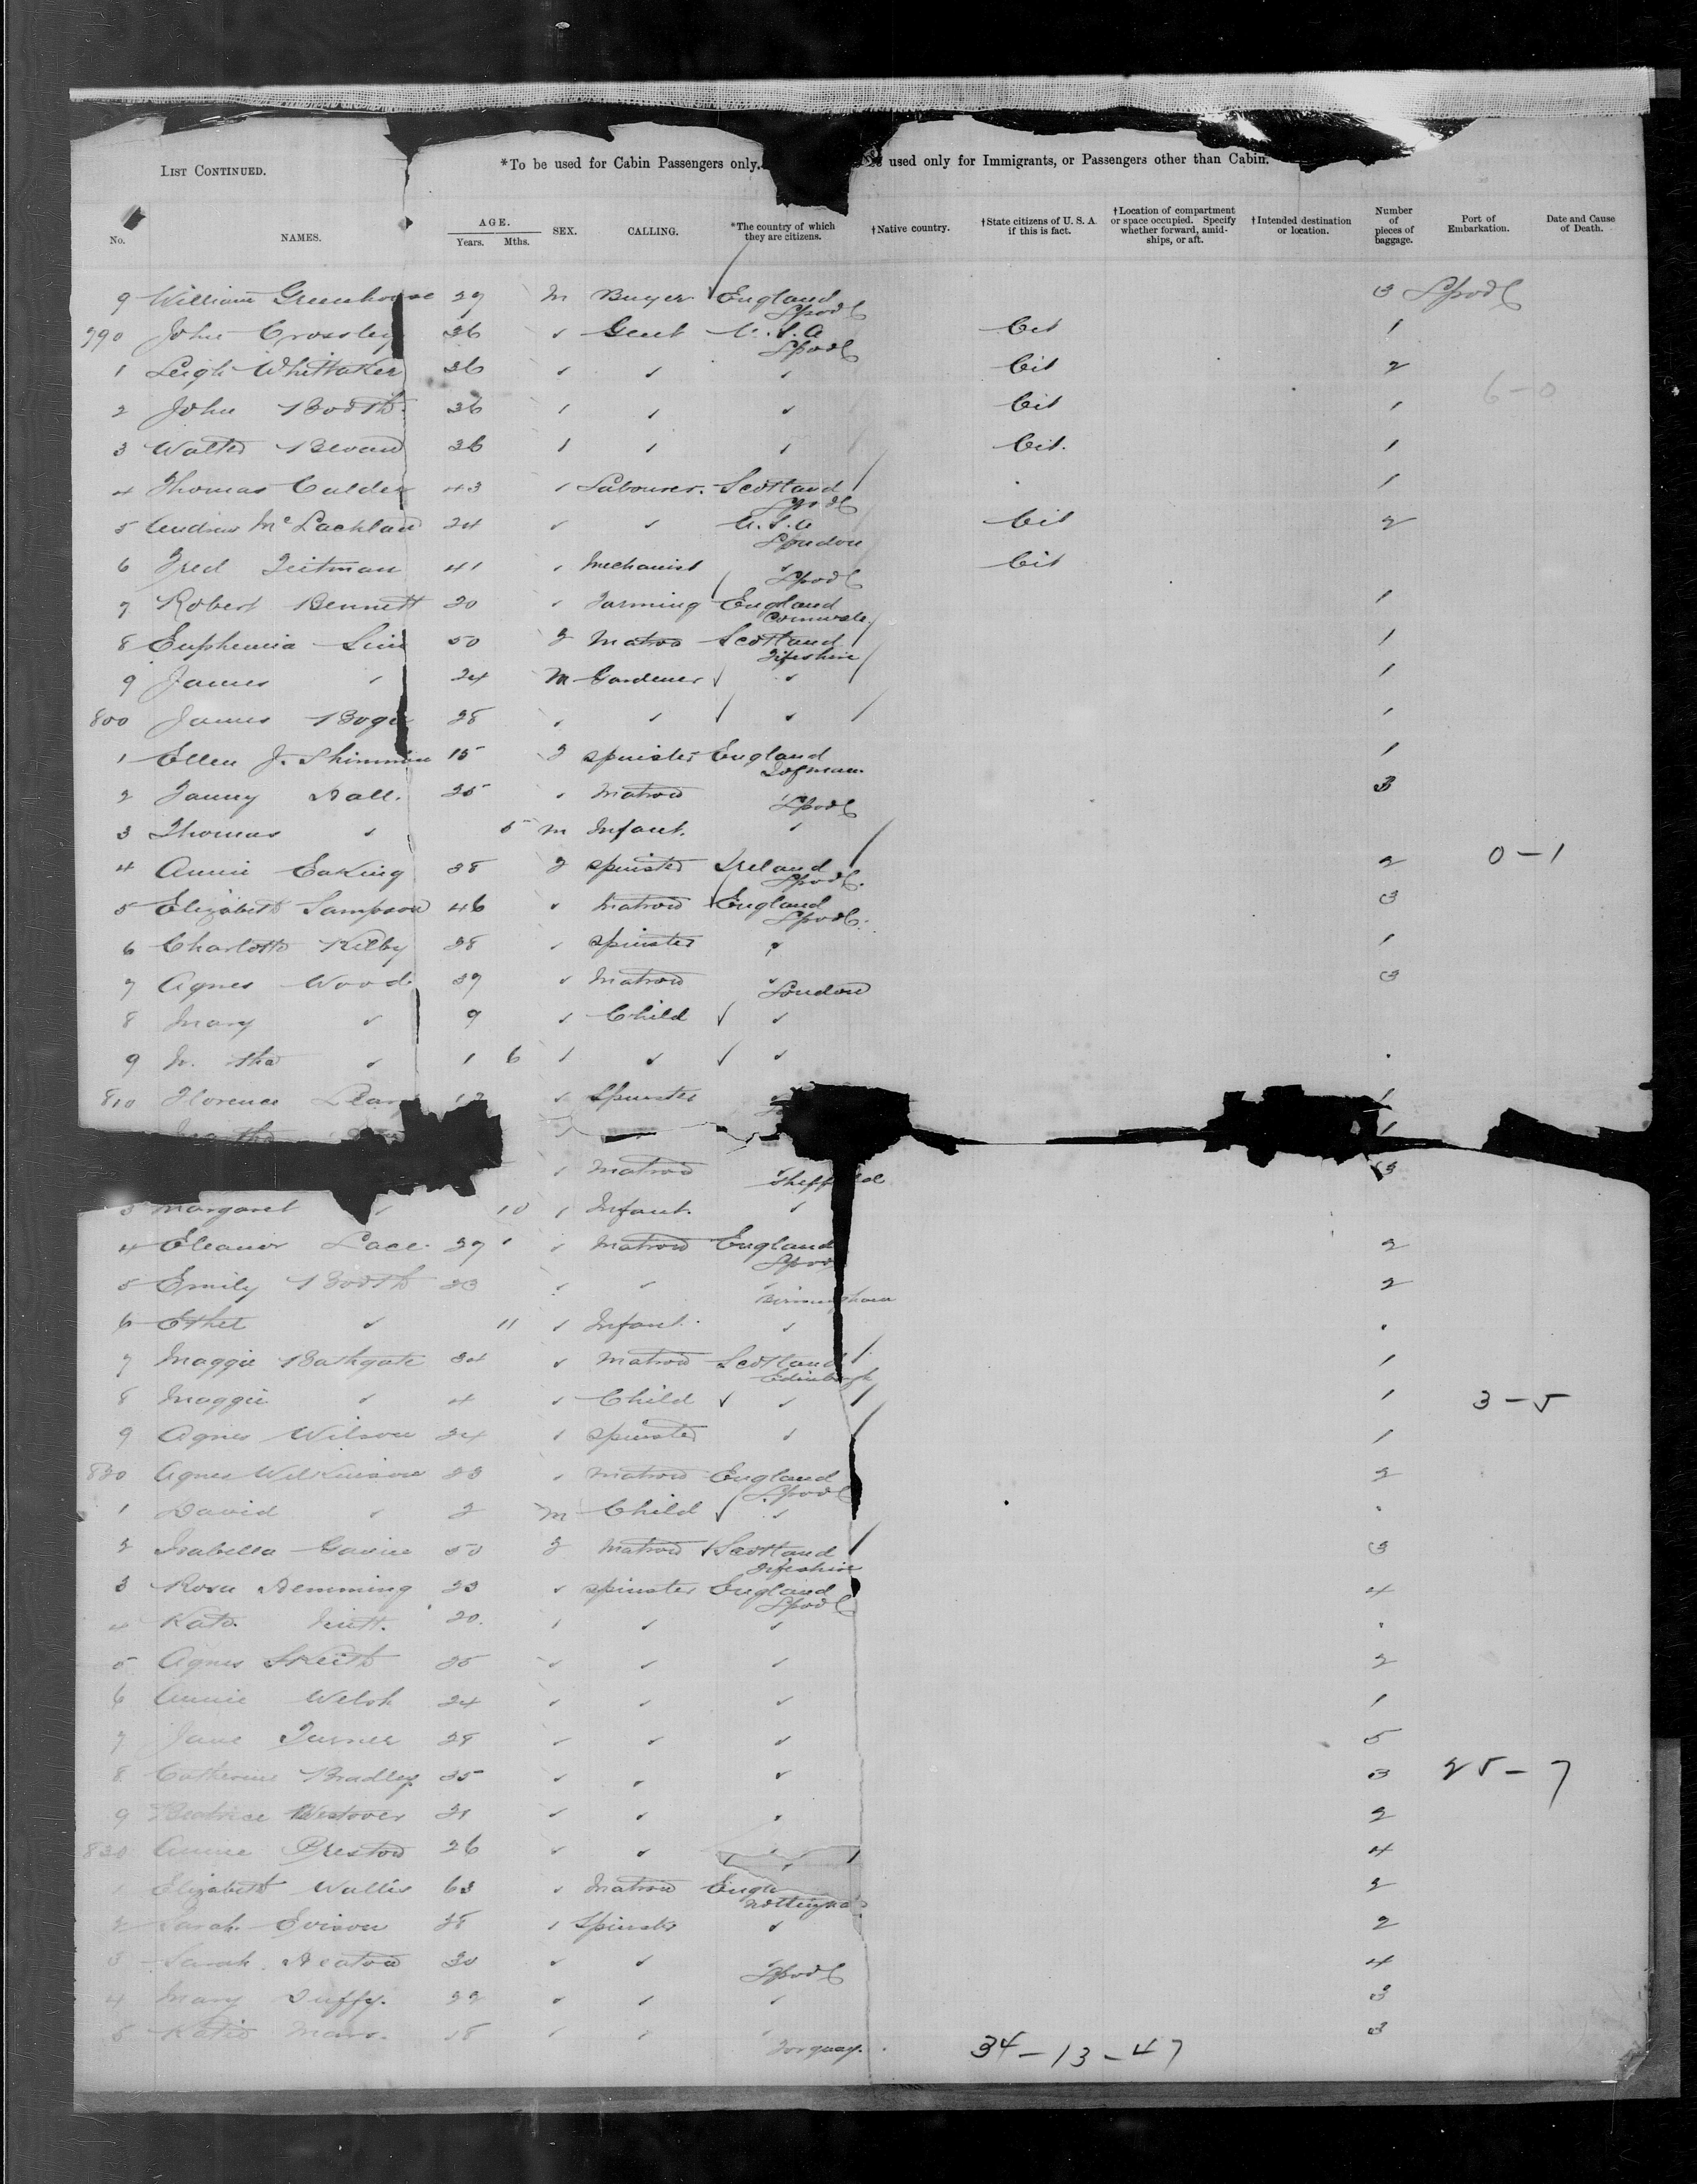 LIST CONTINUED.
*To be used for Cabin Passengers only. used only for Immigrants, or Passengers other than Cabin.
No. NAMES. AGE. Years. Mths. SEX. CALLING. *The country of which they are citizens. †Native country. †State citizens of U. S. A. if this is fact. †Location of compartment or space occupied. Specify whether forward, amidships, or aft. †Intended destination or location. Number of pieces of baggage. Port of Embarkation. Date and Cause of Death.
9 William Greenhouse 29 M Buyer England L'pool 3 L'pool
790 John Crossley 36 " Gent U.S.A L'pool Cit 1
1 Leigh Whittaker 26 " " " Cit 2
6-0
2 John Booth 36 " " " Cit 1
3 Walter 26 " " " Cit. 1
4 Thomas Calder 43 " Labourer. Scotland 1
5 Andrew McLachlan 24 " " U.S.A London Cit 2
6 Fred 41 " Mechanist " L'pool Cit
7 Robert Bennett 20 " Farming England Cornwall 1
8 Euphemia Sim 50 F Matron Scotland Fifeshire 1
9 James " 24 M Gardener " 1
800 James 28 " " " 1
1 Ellen J. Shimmin 15 F Spinster England 1
2 Fanny Hall. 25 " Matron " L'pool 3
3 Thomas " 5 M Infant. "
4 Annie Eaking 28 F Spinster Ireland L'pool. 2 0-1
5 Elizabeth Sampson 46 " Matron England L'pool. 3
6 Charlotte Kilby 28 " Spinster " 1
7 Agnes Wood 39 " Matron " London 3
8 Mary " 9 " Child "
9 " 1 6 " " "
810 Florence " Spinster 1
1
" Matron Sheffield 3
3 Margaret " 10 " Infant. "
4 Eleanor Lace. 37 " Matron England L'pool 2
5 Emily Booth 23 " " " Birmingham 2
6 Ethel " 11 " Infant. "
7 Maggie Bathgate 34 " Matron Scotland Edinburgh 1
8 Maggie " 4 " Child " 1 3-5
9 Agnes Wilson 24 " Spinster " 1
820 Agnes Wilkinson 23 " Matron England L'pool 2
1 David " 2 M Child "
2 Isabella 50 F Matron Scotland Fifeshire 3
3 Rosa Hemming 23 " Spinster England L'pool 4
4 Kate 20. " " "
5 Agnes 25 " " " 2
6 Annie Welsh 24 " " " 1
7 Jane Turner 28 " " " 5
8 Catherine Bradley 35 " " " 3 25-7
9 Beatrice Westover 21 " " " 2
830 Annie Preston 26 " " " 4
1 Elizabeth Wallis 63 " Matron Nottingham 2
2 Sarah Evison 38 " Spinster " 2
3 Sarah Heaton 30 " " " L'pool 4
4 Mary Duffy. 22 " " " 3
5 18 " " " Torquay. 3
34-13-47